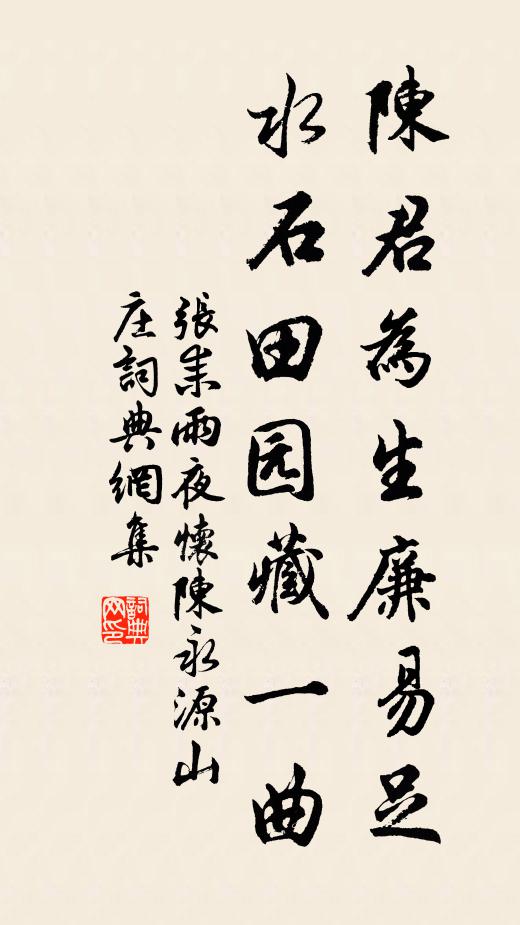 陳君為生廉易足
水石田园藏一曲
張耒雨夜懷陳永源山
庄詞典網集
詞典网印